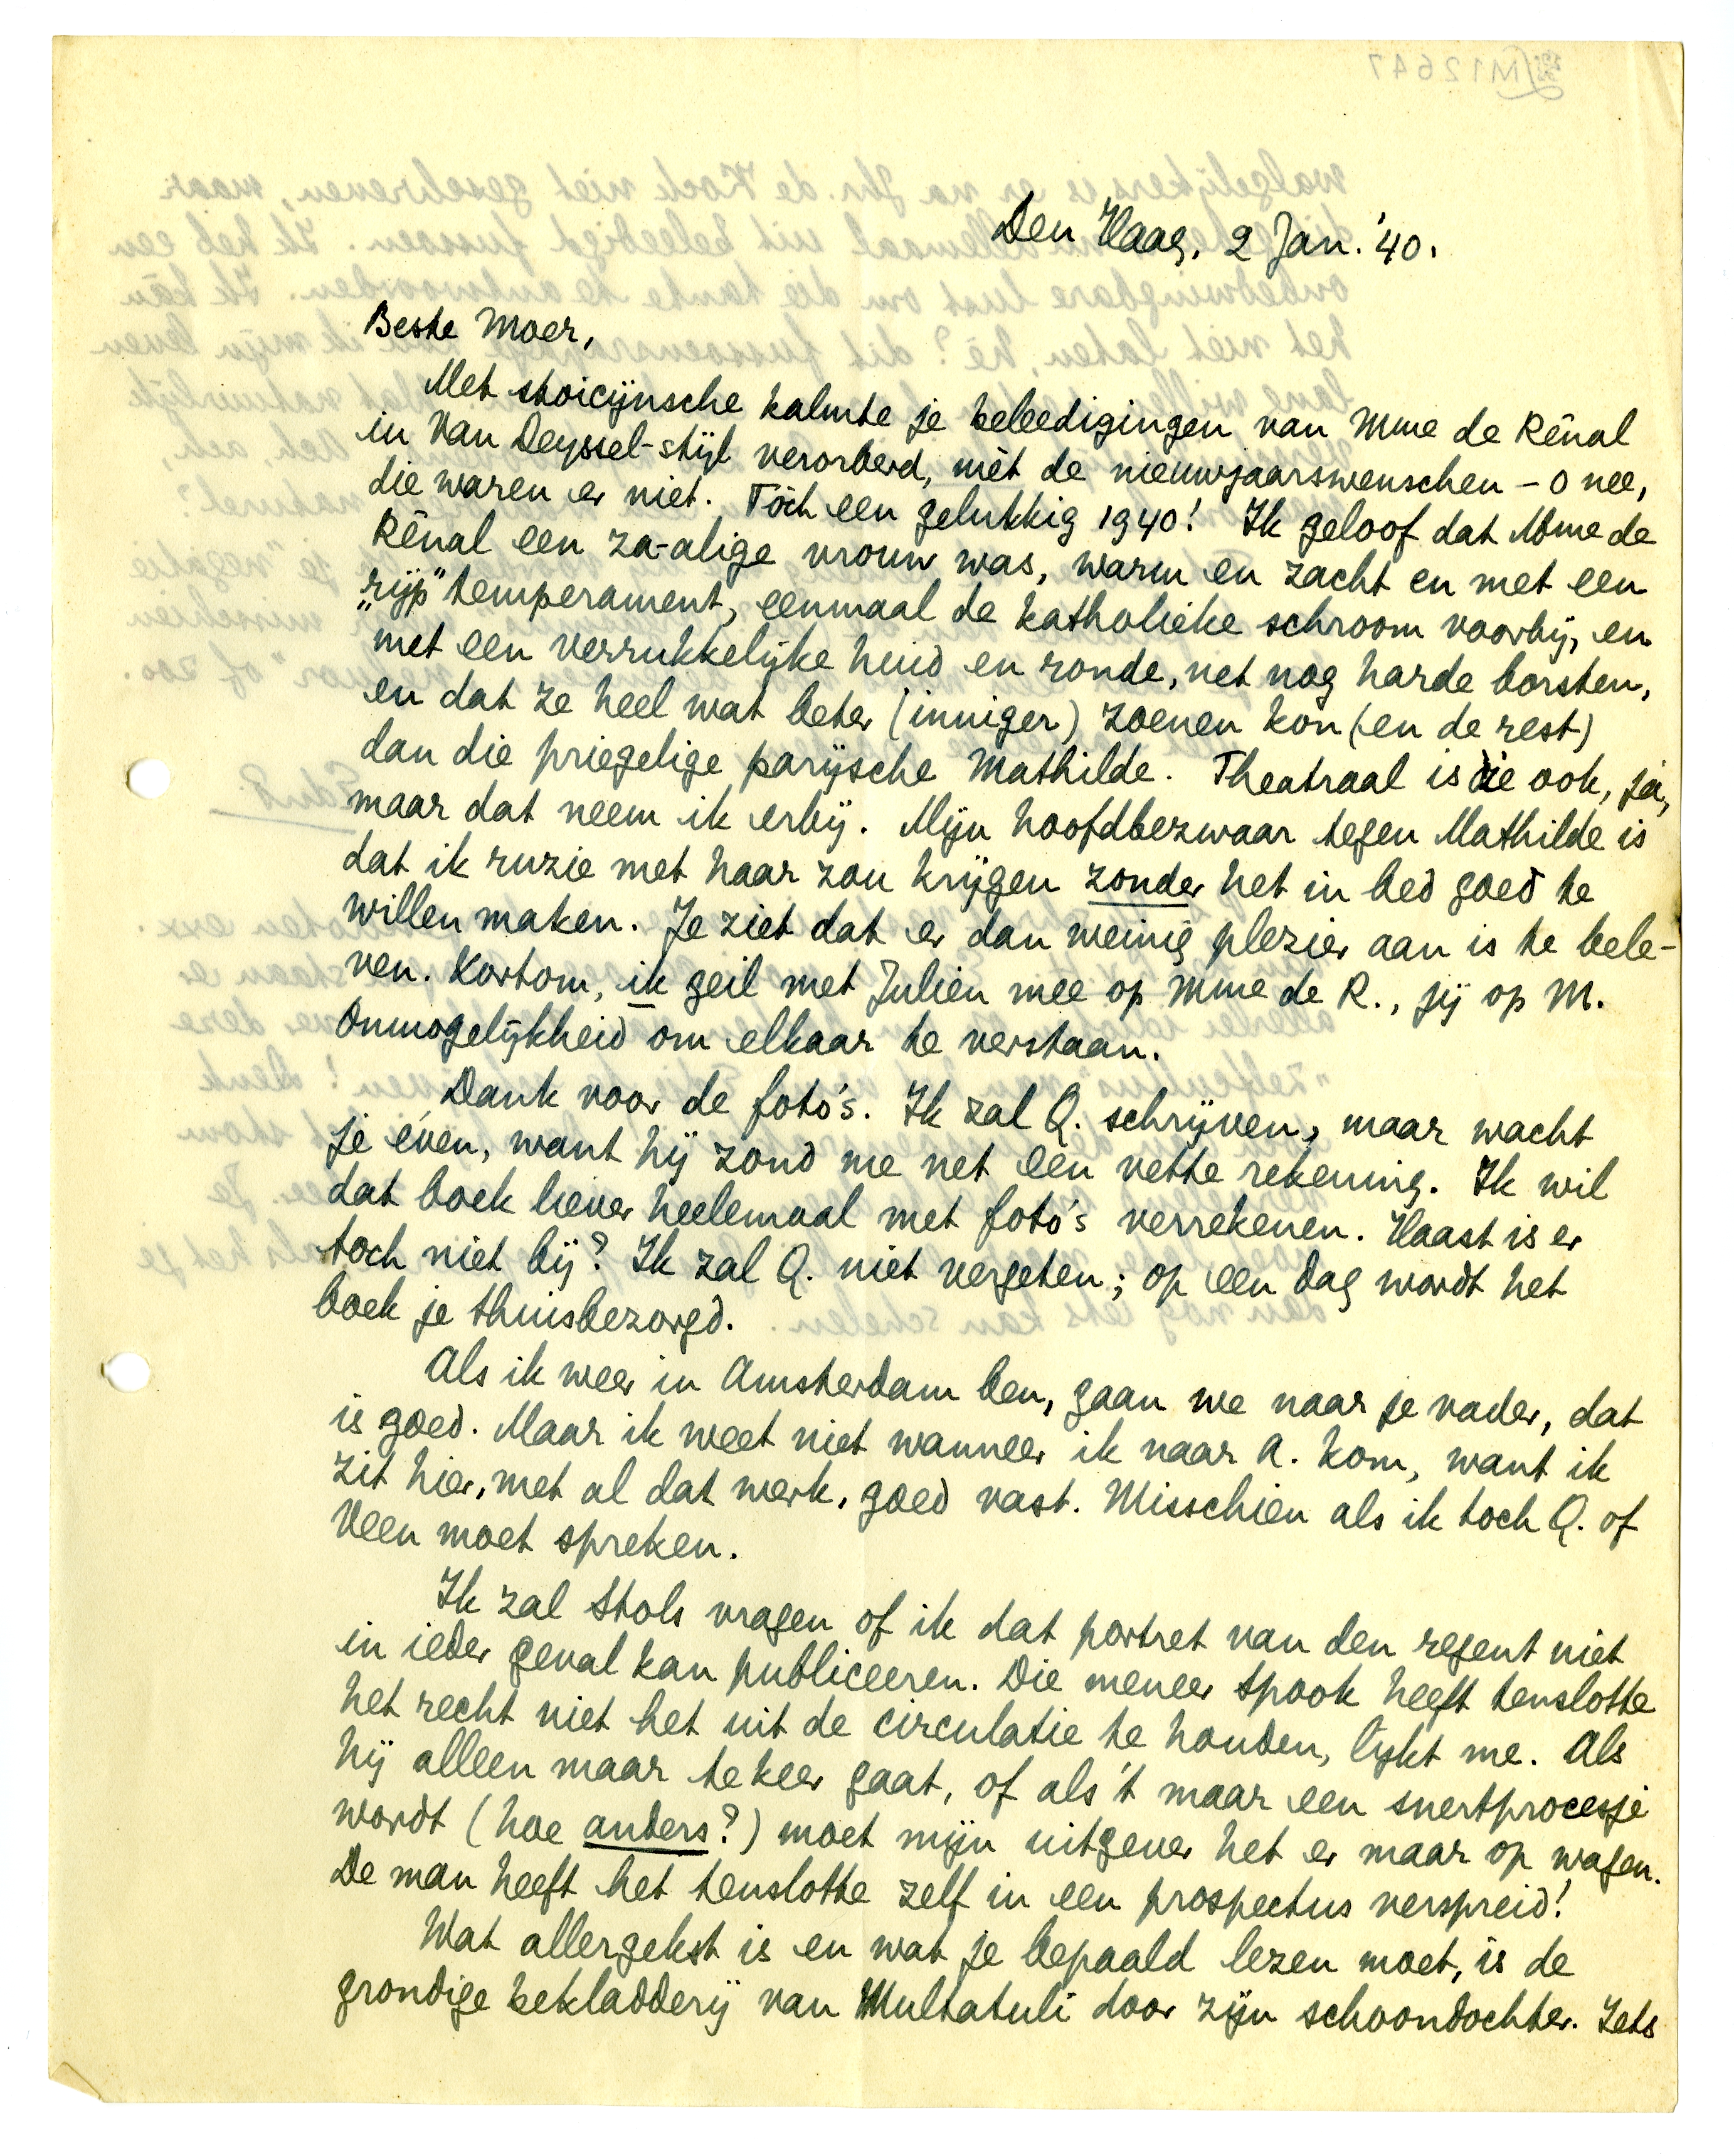 Den Haag, 2 Jan. '40.
Beste Moer,
Met stoicijnsche kalmte je beleedigingen van Mme de Rênal
in Van Deyssel-stijl verorberd, mèt de nieuwjaarswenschen – o nee,
die waren er niet. Tòch een gelukkig 1940! Ik geloof dat Mme de
Rênal een za-alige vrouw was, warm en zacht en met een
„rijp" temperament, eenmaal de katholieke schroom voorbij, en
met een verrukkelijke huid en ronde, net nog harde borsten,
en dat ze heel wat beter (inniger) zoenen kon (en de rest)
dan die priegelige parijsche Mathilde. Theatraal is die ook, ja,
maar dat neem ik erbij. Mijn hoofdbezwaar tegen Mathilde is
dat ik ruzie met haar zou krijgen zonder het in bed goed te
willen maken. Je ziet dat er dan weinig plezier aan is te bele-
ven. Kortom, ik geil met Julien mee op Mme de R., jij op M.
Onmogelijkheid om elkaar te verstaan.
Dank voor de foto's. Ik zal Q. schrijven, maar wacht
je even, want hij zond me net een vette rekening. Ik wil
dat boek liever heelemaal met foto's verrekenen. Haast is er
toch niet bij? Ik zal Q. niet vergeten; op een dag wordt het
boek je thuisbezorgd.
Als ik weer in Amsterdam ben, gaan we naar je vader, dat
is goed. Maar ik weet niet wanneer ik naar A. kom, want ik
zit hier, met al dat werk, goed vast. Misschien als ik toch Q. of
Veen moet spreken.
Ik zal Stols vragen of ik dat portret van den regent niet
in ieder geval kan publiceeren. Die meneer Spook heeft tenslotte
het recht niet het uit de circulatie te houden, lijkt me. Als
hij alleen maar te keer gaat, of als 't maar een snertprocesje
wordt (hoe anders?) moet mijn uitgever het er maar op wagen.
De man heeft het tenslotte zelf in een prospectus verspreid!
Wat allergekst is en wat je bepaald lezen moet, is de
grondige bekladderij van Multatuli door zijn schoondochter. Iets